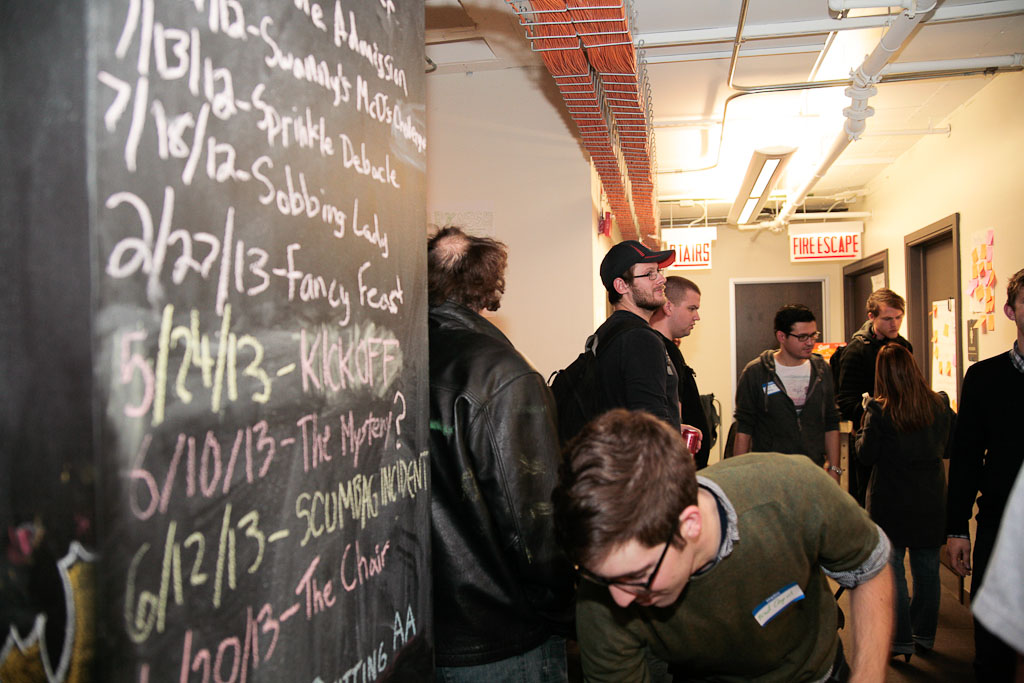 The Admission
7/13/12-Swanny's McD's Challenge
7/18/12-Sprinkle Debacle
Sobbing Lady
2/27/13-Fancy Feast
5/24/13-KICKOFF
6/10/13-The Mystery?
6/12/13-SCUMBAG INCIDENT
/20/13-The Chair
AA
STAIRS
FIRE ESCAPE